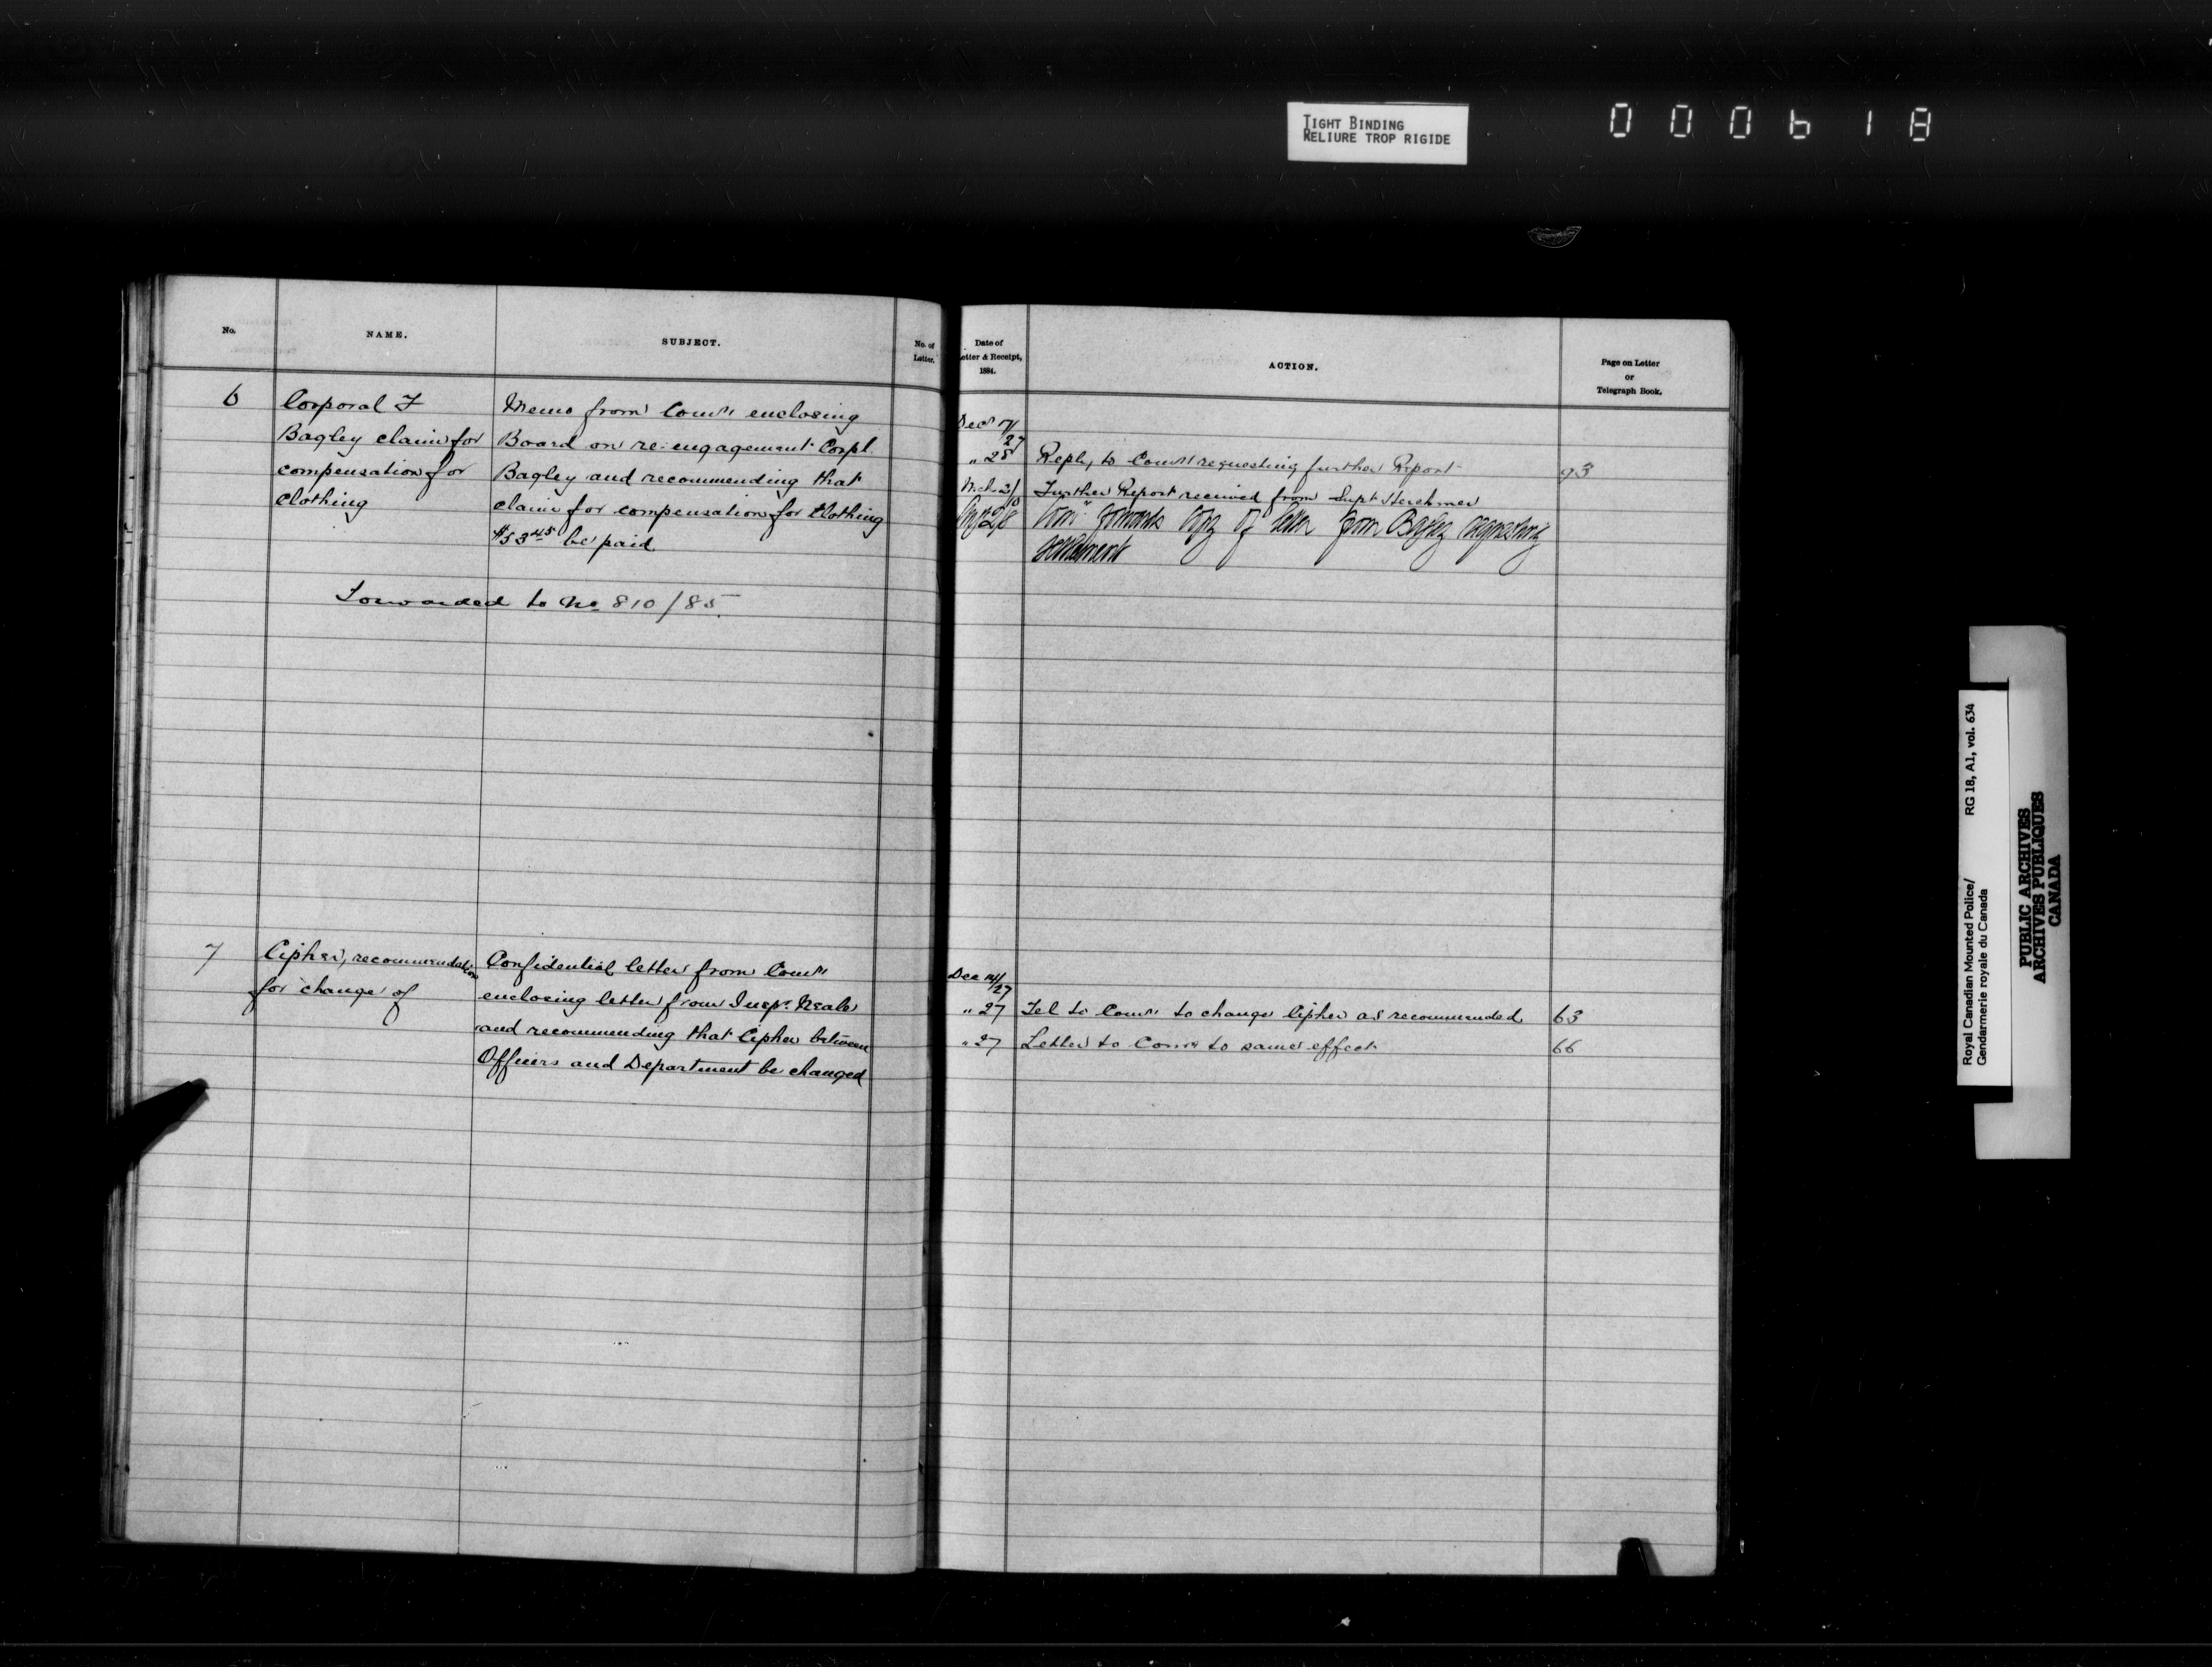 TIGHT BINDING
RELIURE TROP RIGIDE
000618
No.
NAME.
SUBJECT.
No. of
Letter.
6
Corporal F
Bagley claim for
compensation for
clothing
Memo from Comr enclosing
Board on re-engagement Corpl.
Bagley and recommending that
claim for compensation for clothing
$53 45 be paid.
Forwarded to No 810/85.
7
Cipher, recommendation
for change of
Confidential letter from Comr
enclosing letter from Inspr. Neale
and recommending that Cipher between
Officers and Department be changed
Date of
etter & Receipt,
1884.
ACTION.
Page on Letter
or
Telegraph Book.
Dec 17/27
" 28 Reply to Comr requesting further Report 93
Further Report received from Supt Herchmer
Comr forwards copy of letter from Bagley requesting
settlement
Dec 14/27
" 27 Tel to Comr to change Cipher as recommended 63
" 27 Letter to Comr to same effect 66
Royal Canadian Mounted Police/ RG 18, A1, vol. 634
Gendarmerie royale du Canada
PUBLIC ARCHIVES
ARCHIVES PUBLIQUES
CANADA